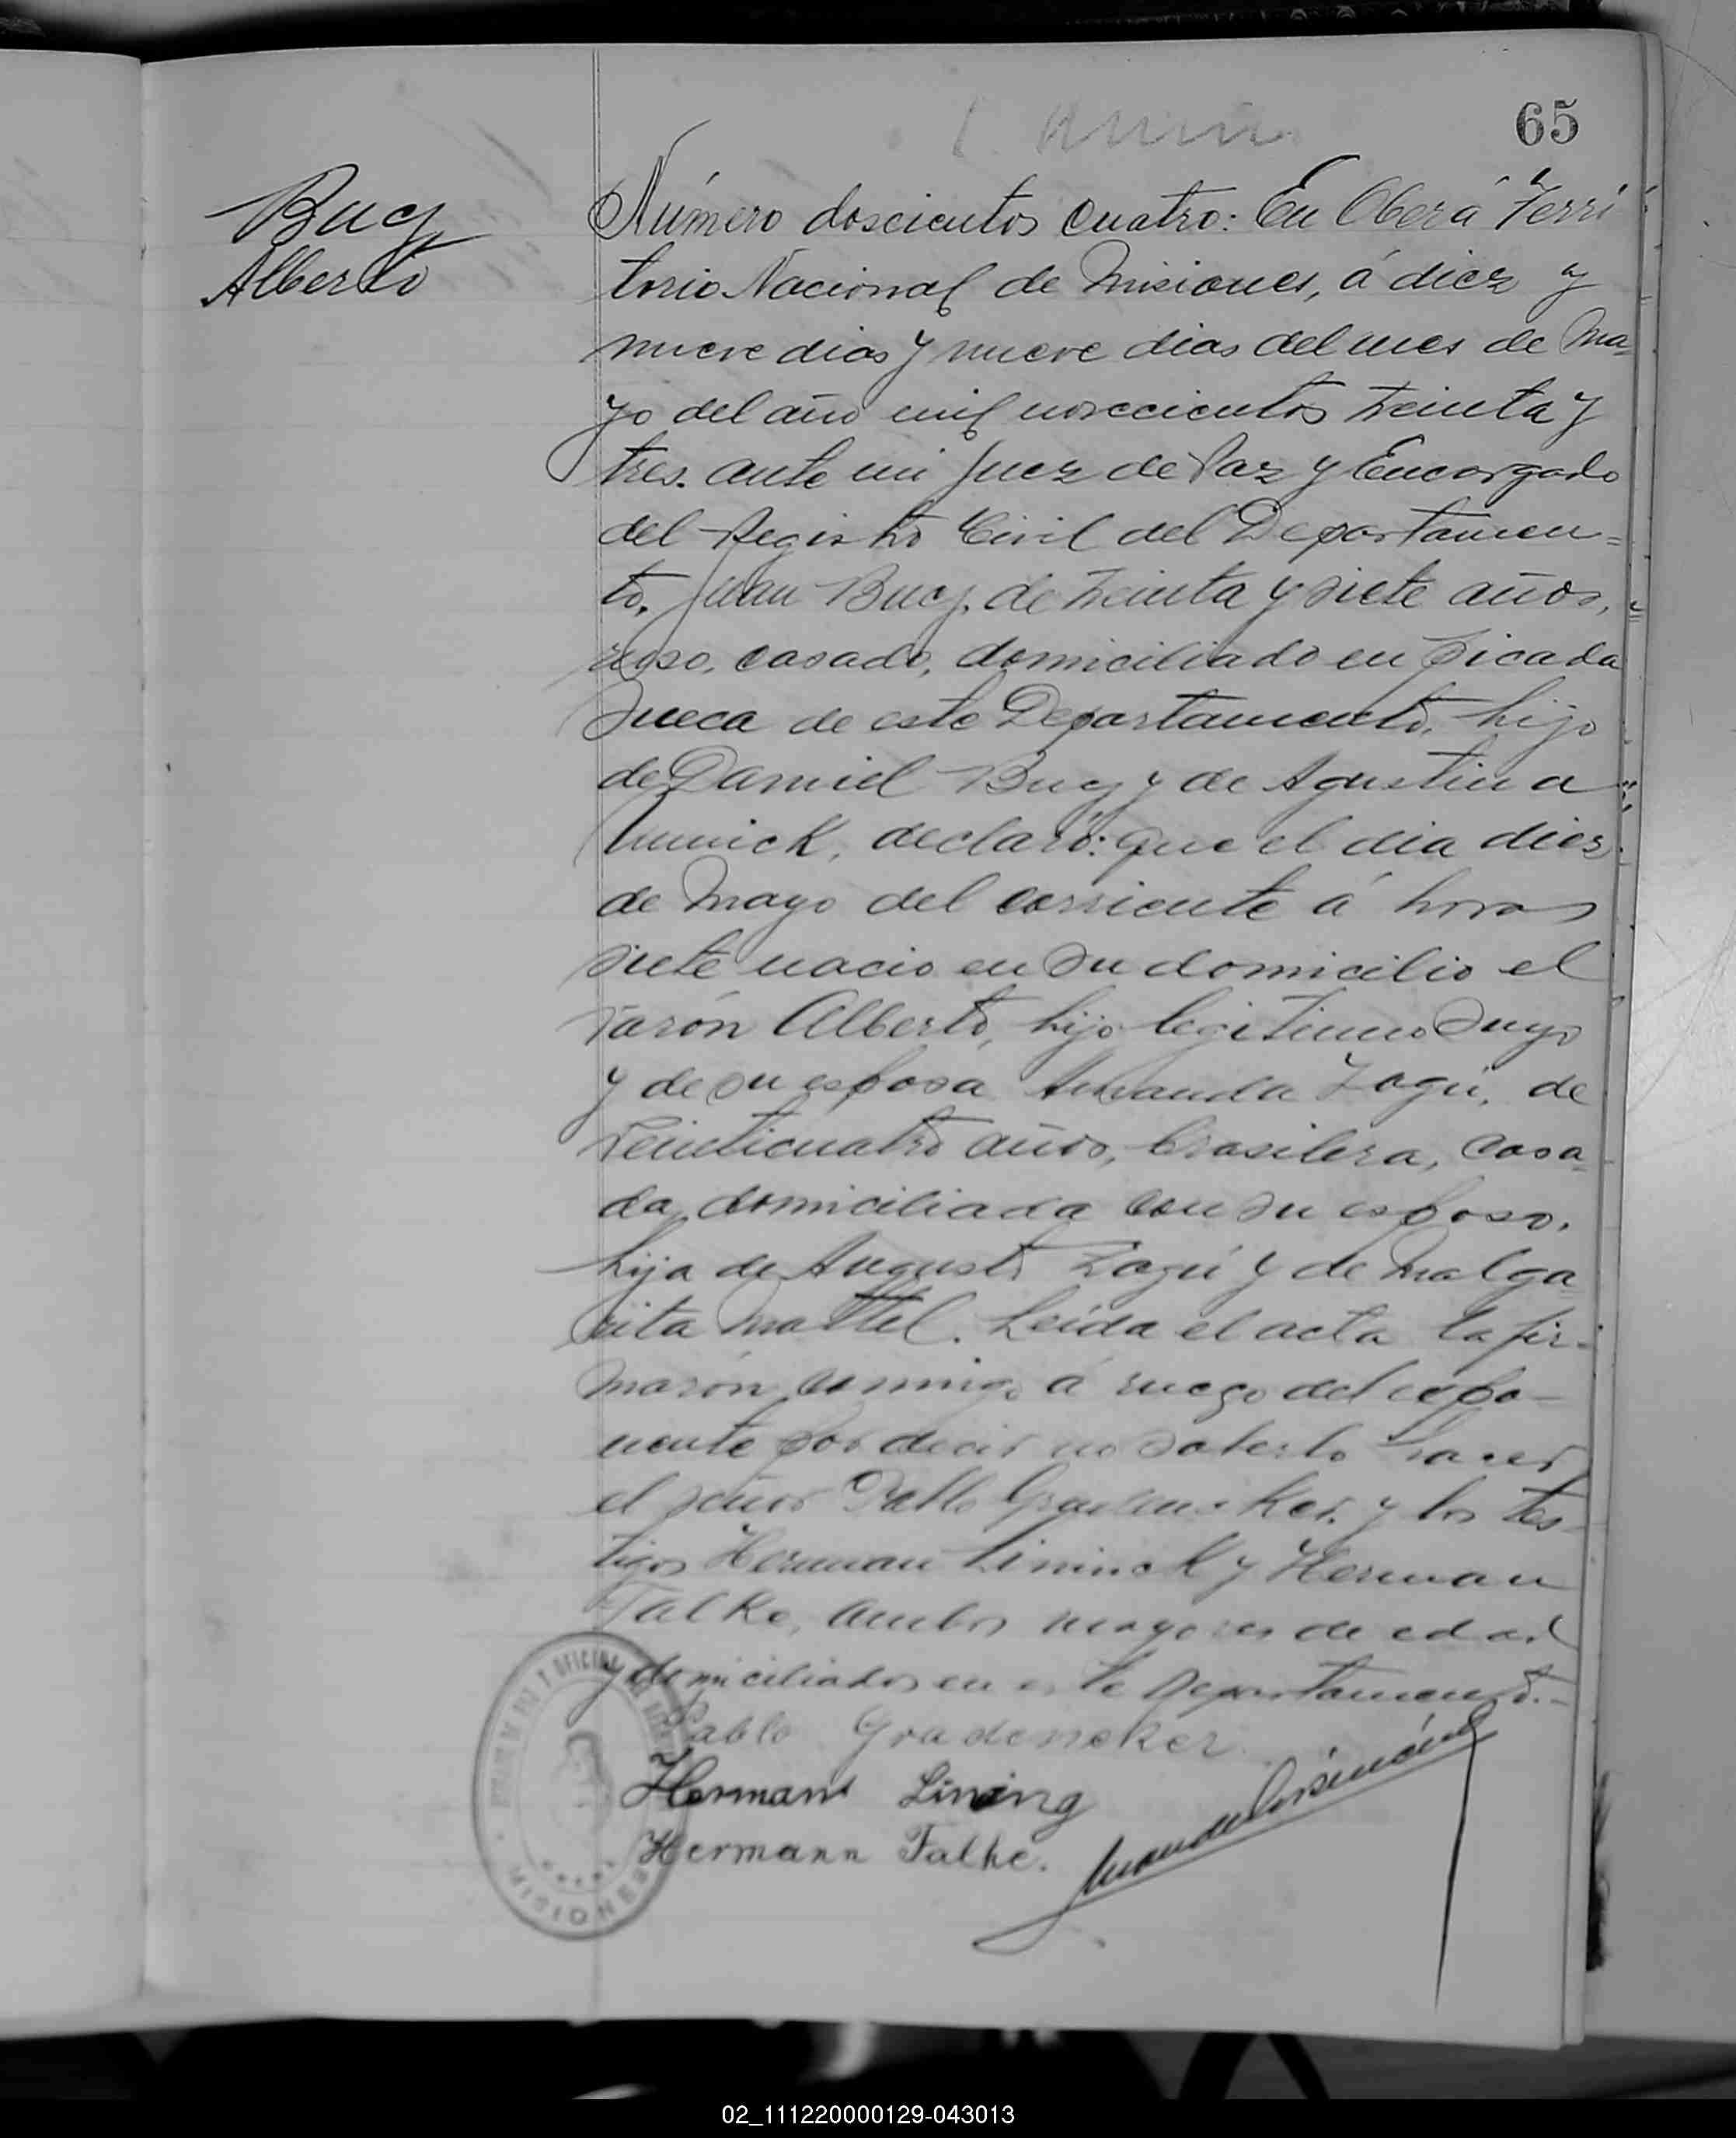 65
Bucz
Alberto
Número doscientos cuatro: En Oberá Terri
torio Nacional de Misiones, á diez y
nueve dias y nueve dias del mes de Ma-
yo del año mil novecientos treinta y
tres. ante mi Juez de Paz y Encargado
del Registro Civil del Departamen=
to, Juan Bucz, de treinta y siete años,
ruso, casado, domiciliado en Picada
Sueca de este Departamento, hijo
de Daniel Bucz y de Agustina
declaró: que el dia diez
de Mayo del corriente á horas
siete nacio en su domicilio el
varón Alberto, hijo legitimo suyo
y de su esposa Amanda Zagú, de
veinticuatro años, brasilera, casa-
da, domiciliada con su esposo,
hija de Augusto Zagú y de Malga-
rita Mattel. Leída el acta la fir-
marón conmigo á ruego del expo-
nente por decir no saberlo hacer
el señor Pablo Gradeneker, y los tes-
tigos Herman Lininck y Herman
Falke, ambos mayores de edad
y domiciliados en este Departamento.-
Pablo Gradeneker
Hermann Lining
Hermann Falke.
MISIONES
02_111220000129-043013